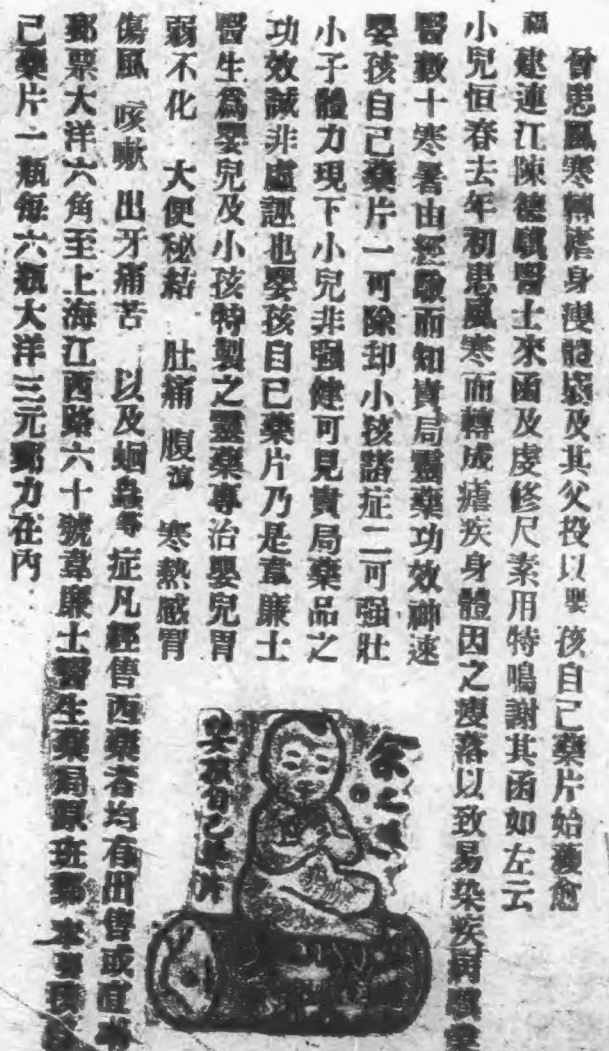 曾患風寒轉瘧身瘦體𤺥及其父投以嬰孩自己藥片始獲愈
福建連江陳德騏醫士來函及虔修尺素用特鳴謝其函如左云
小兒恒春去年初患風寒而轉成瘧疾身體因之瘦落以致易染疾病騏業
醫數十寒暑由經驗而知貴局靈藥功效神速
嬰孩自己藥片一可除却小孩諸症二可强壯
小子體力現下小兒非强健可見貴局藥品之
功效誠非虛誑也嬰孩自己藥片乃是韋廉士
醫生爲嬰兒及小孩特製之靈藥專治嬰兒胃
弱不化 大便秘結 肚痛 腹瀉 寒熱感冒
傷風 咳嗽 出牙痛苦 以及蛔蟲等症凡經售西藥者均有出售或直
郵票大洋六角至上海江西路六十號韋廉士醫生藥局原班郵
己藥片一瓶每六瓶大洋三元郵力在內
余之
嬰孩自己藥片